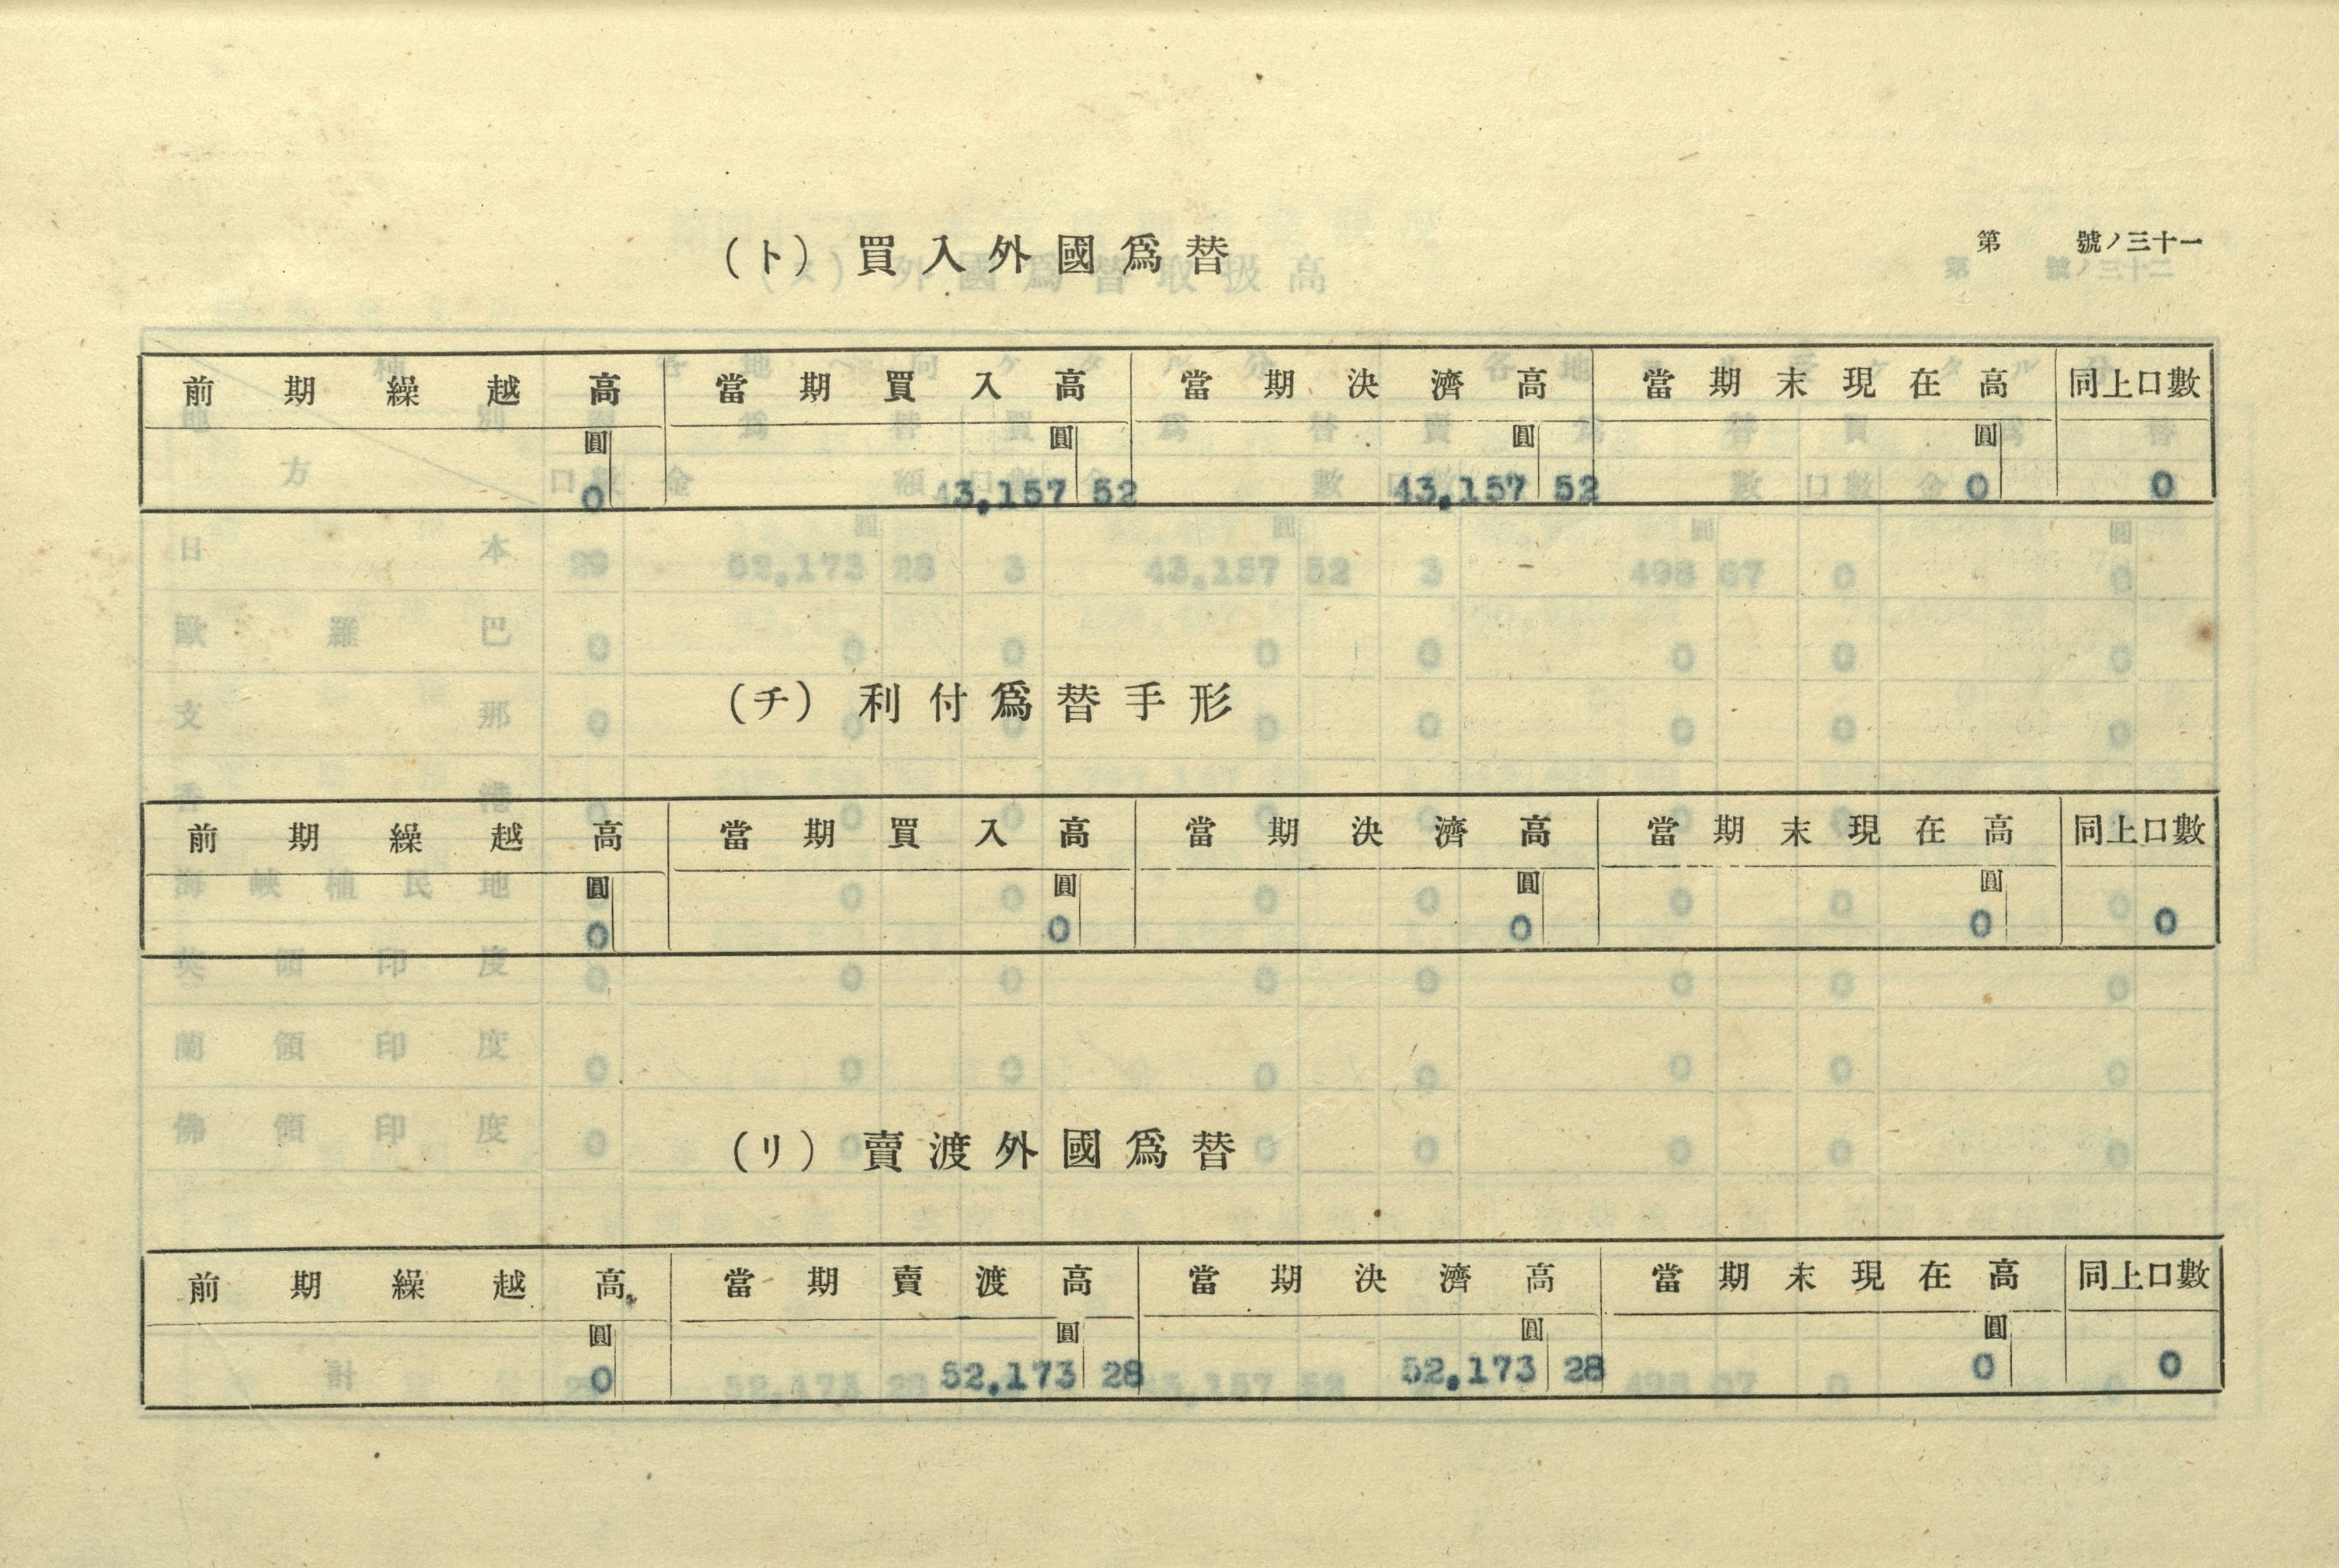 第 號ノ三十一
(ト) 買入外國爲替
前期繰越高 當期買入高 當期決濟高 當期末現在高 同上口數
圓 圓 圓 圓
0 43,157 52 43,157 52 0 0
(チ) 利付爲替手形
前期繰越高 當期買入高 當期決濟高 當期末現在高 同上口數
圓 圓 圓 圓
0 0 0 0 0
(リ) 賣渡外國爲替
前期繰越高 當期賣渡高 當期決濟高 當期末現在高 同上口數
圓 圓 圓 圓
0 52,173 28 52,173 28 0 0